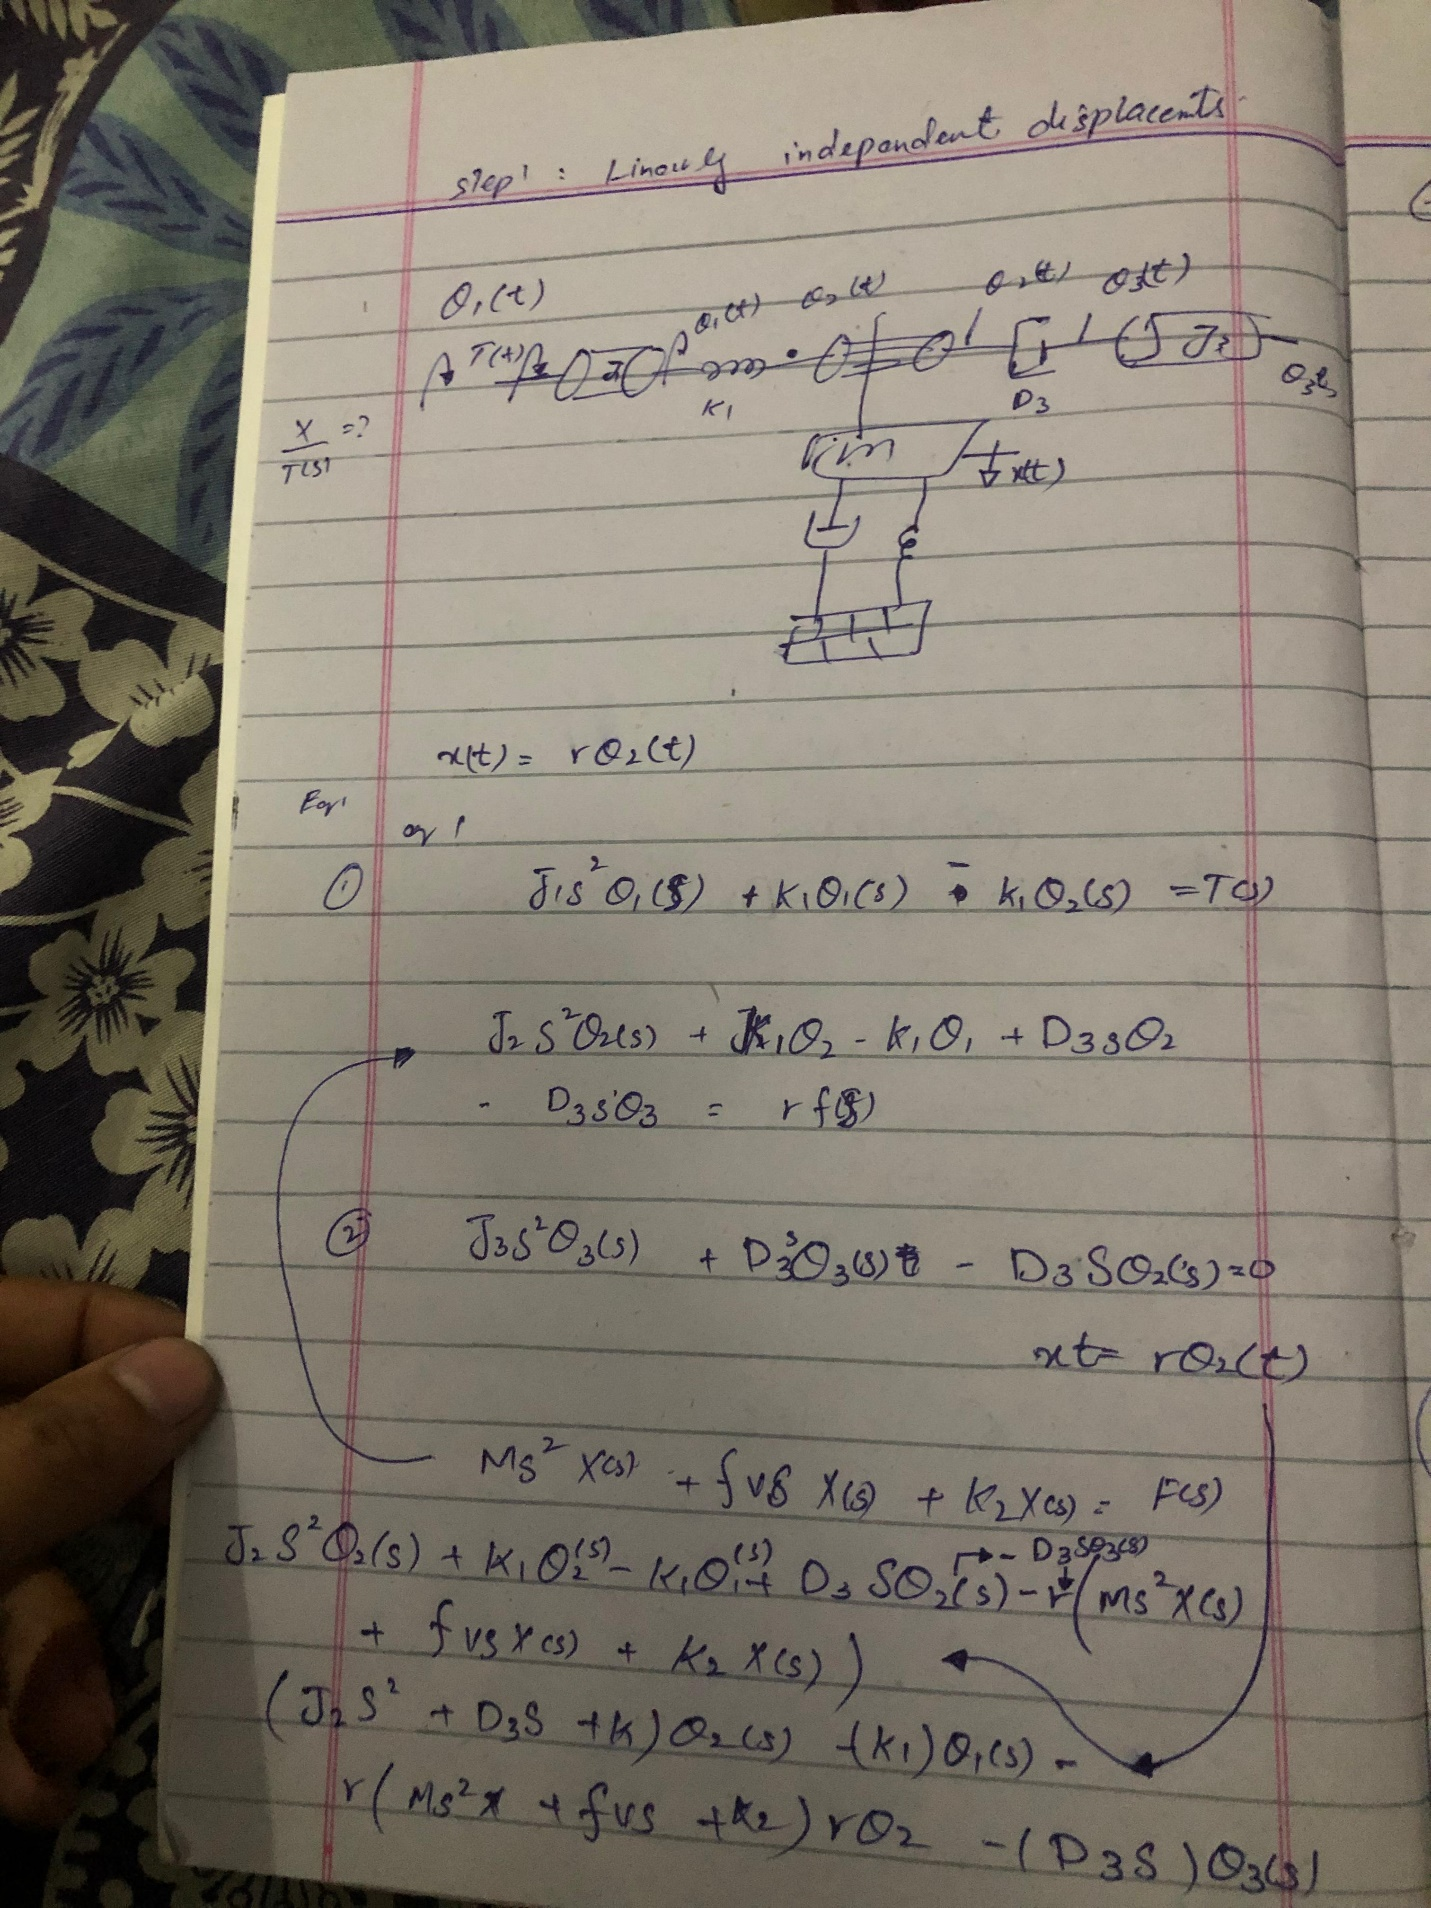 step1 : Linearly independent displacents
θ₁(t)
T(t) J₁ θ₁(t) θ₂(t) θ₂(t) θ3(t)
K1 D3 J3 θ3
X/T(s) =?
m x(t)
x(t) = rθ₂(t)
Eq1
eq 1
① J₁s²θ₁(s) + K₁θ₁(s) - K₁θ₂(s) = T(s)
J₂s²θ₂(s) + K₁θ₂ - K₁θ₁ + D3sθ₂
- D3sθ3 = r f(s)
② J3s²θ3(s) + D3sθ3(s) - D3Sθ₂(s)=0
xt= rθ₂(t)
Ms² X(s) + fvs X(s) + K₂X(s) = F(s)
J₂S²θ₂(s) + K₁θ₂(s) - K₁θ₁(s) + D3 Sθ₂(s) - D3Sθ3(s) - r(Ms²X(s)
+ fvs X(s) + K₂ X(s))
(J₂S² + D3S +K)θ₂(s) -(K₁)θ₁(s) -
r(Ms²x + fvs +K₂)rθ₂ -(D3S)θ3(s)